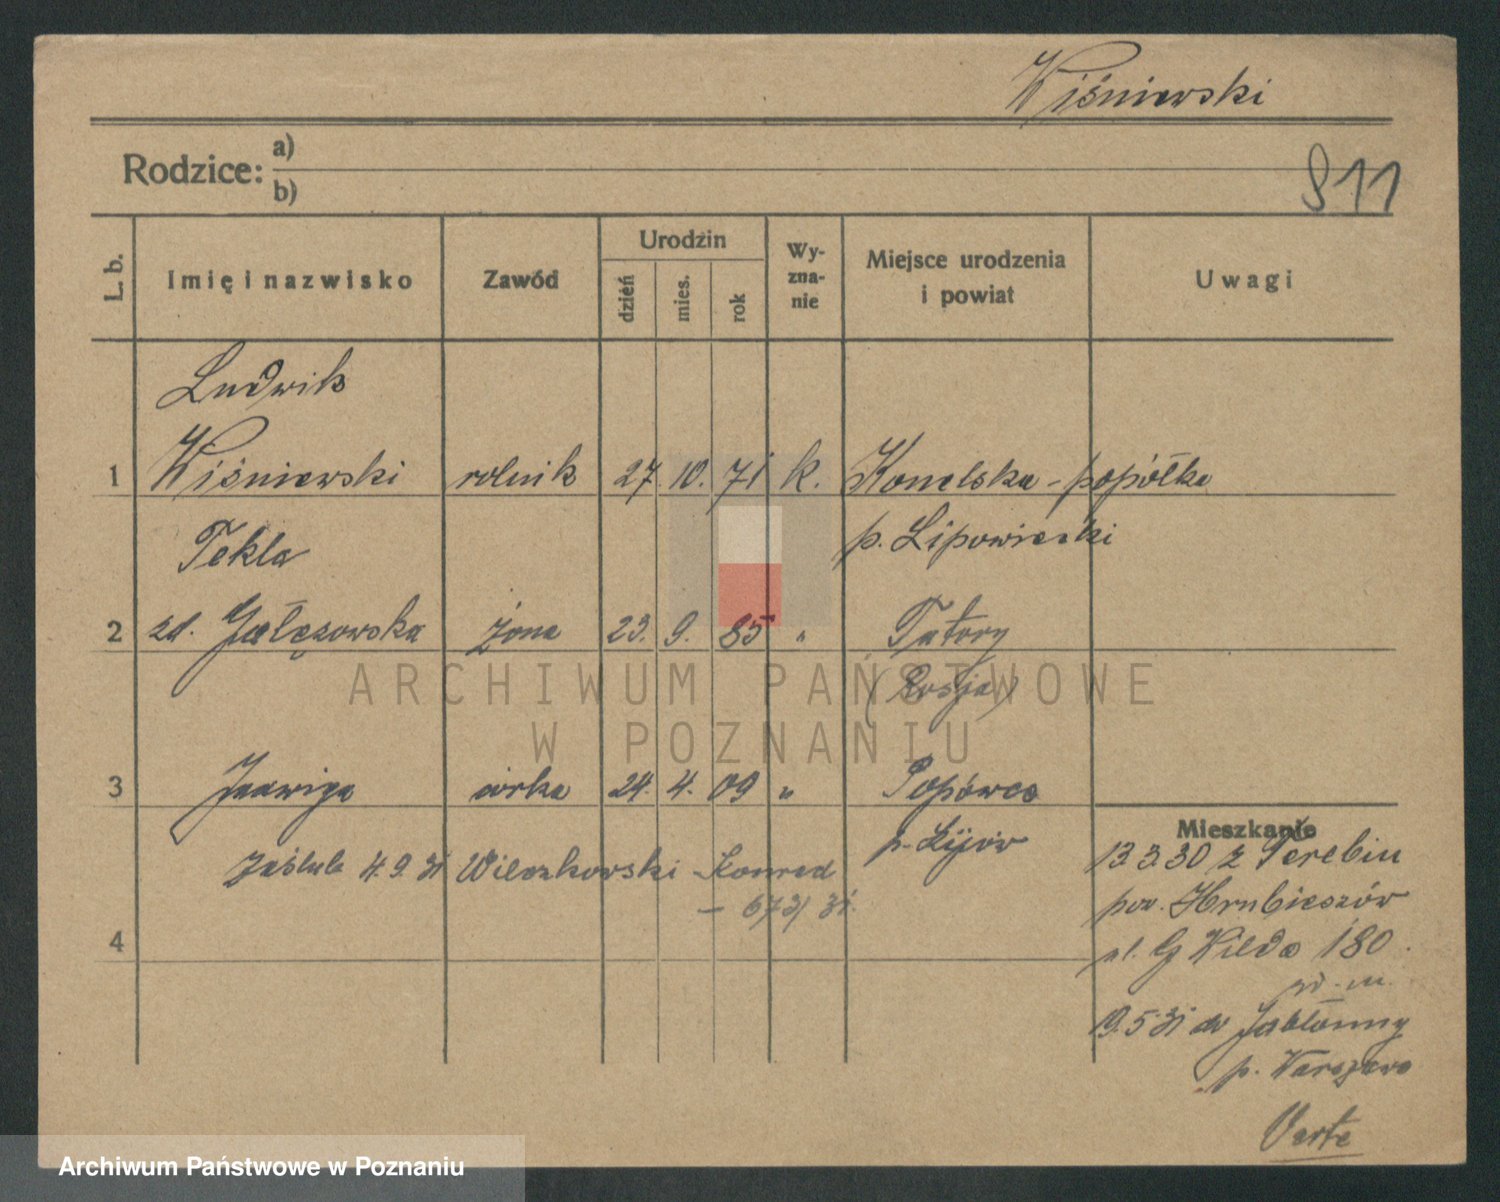 Wiśniewski
Rodzice: a)
b)
911
L. b.
Imię i nazwisko
Zawód
Urodzin
dzień
mies.
rok
Wy-
zna-
nie
Miejsce urodzenia
i powiat
Uwagi
Ludwik
1 Wiśniewski rolnik 27. 10. 71 k. Konelska - popółka
p. Lipowiecki
Tekla
2 zd. Gałęzowska żona 23. 9. 85 " Tatory
(Rosja)
3 Jadwiga córka 24. 4. 09 " Popówco
p. Kijów
Zaślub 4.9.31 Wilczkowski - Konrad
- 673/31.
4
Mieszkanie
13.3.30 z Terebiu
pow. Hrubieszów
ul. G Wilda 180.
19.5.31 do Jabłonny
p. Warszawa
Verte
ARCHIWUM PAŃSTWOWE
W POZNANIU
Archiwum Państwowe w Poznaniu